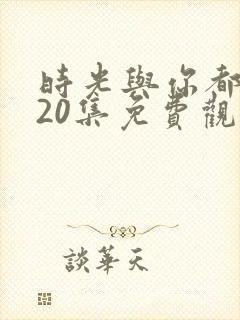 時光與你都
20集免費觀
談華天